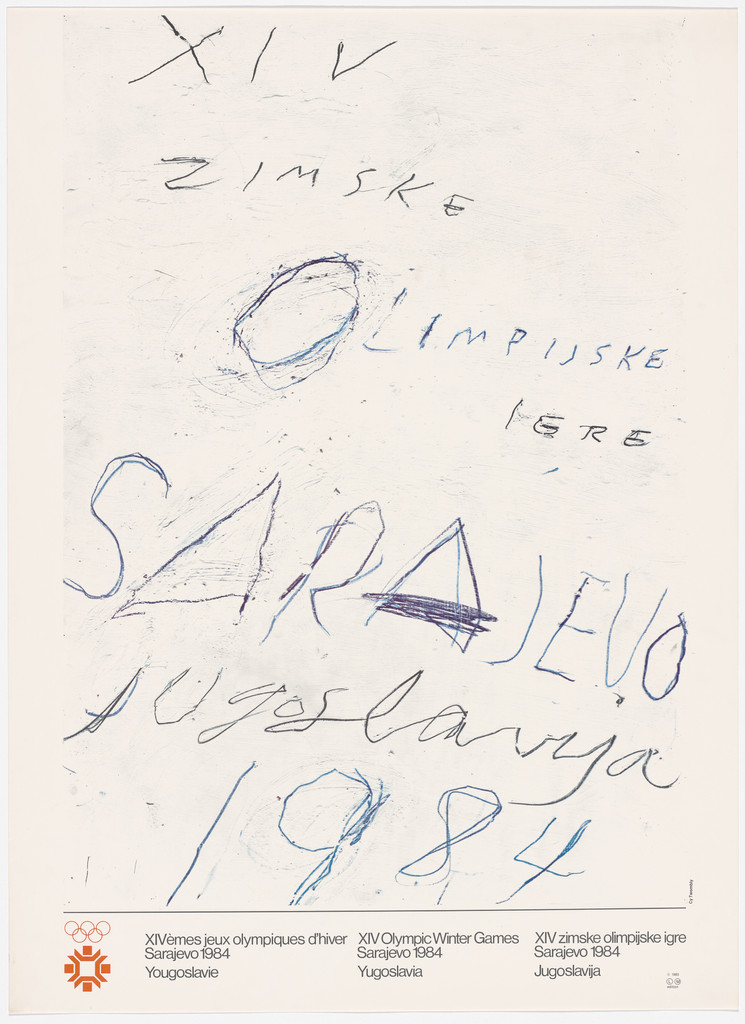 XIV
ZIMSKE
OLIMPIJSKE
IGRE
SARAJEVO
Jugoslavija
1984
Cy Twombly
XIVèmes jeux olympiques d'hiver
Sarajevo 1984
Yougoslavie
XIV Olympic Winter Games
Sarajevo 1984
Yugoslavia
XIV zimske olimpijske igre
Sarajevo 1984
Jugoslavija